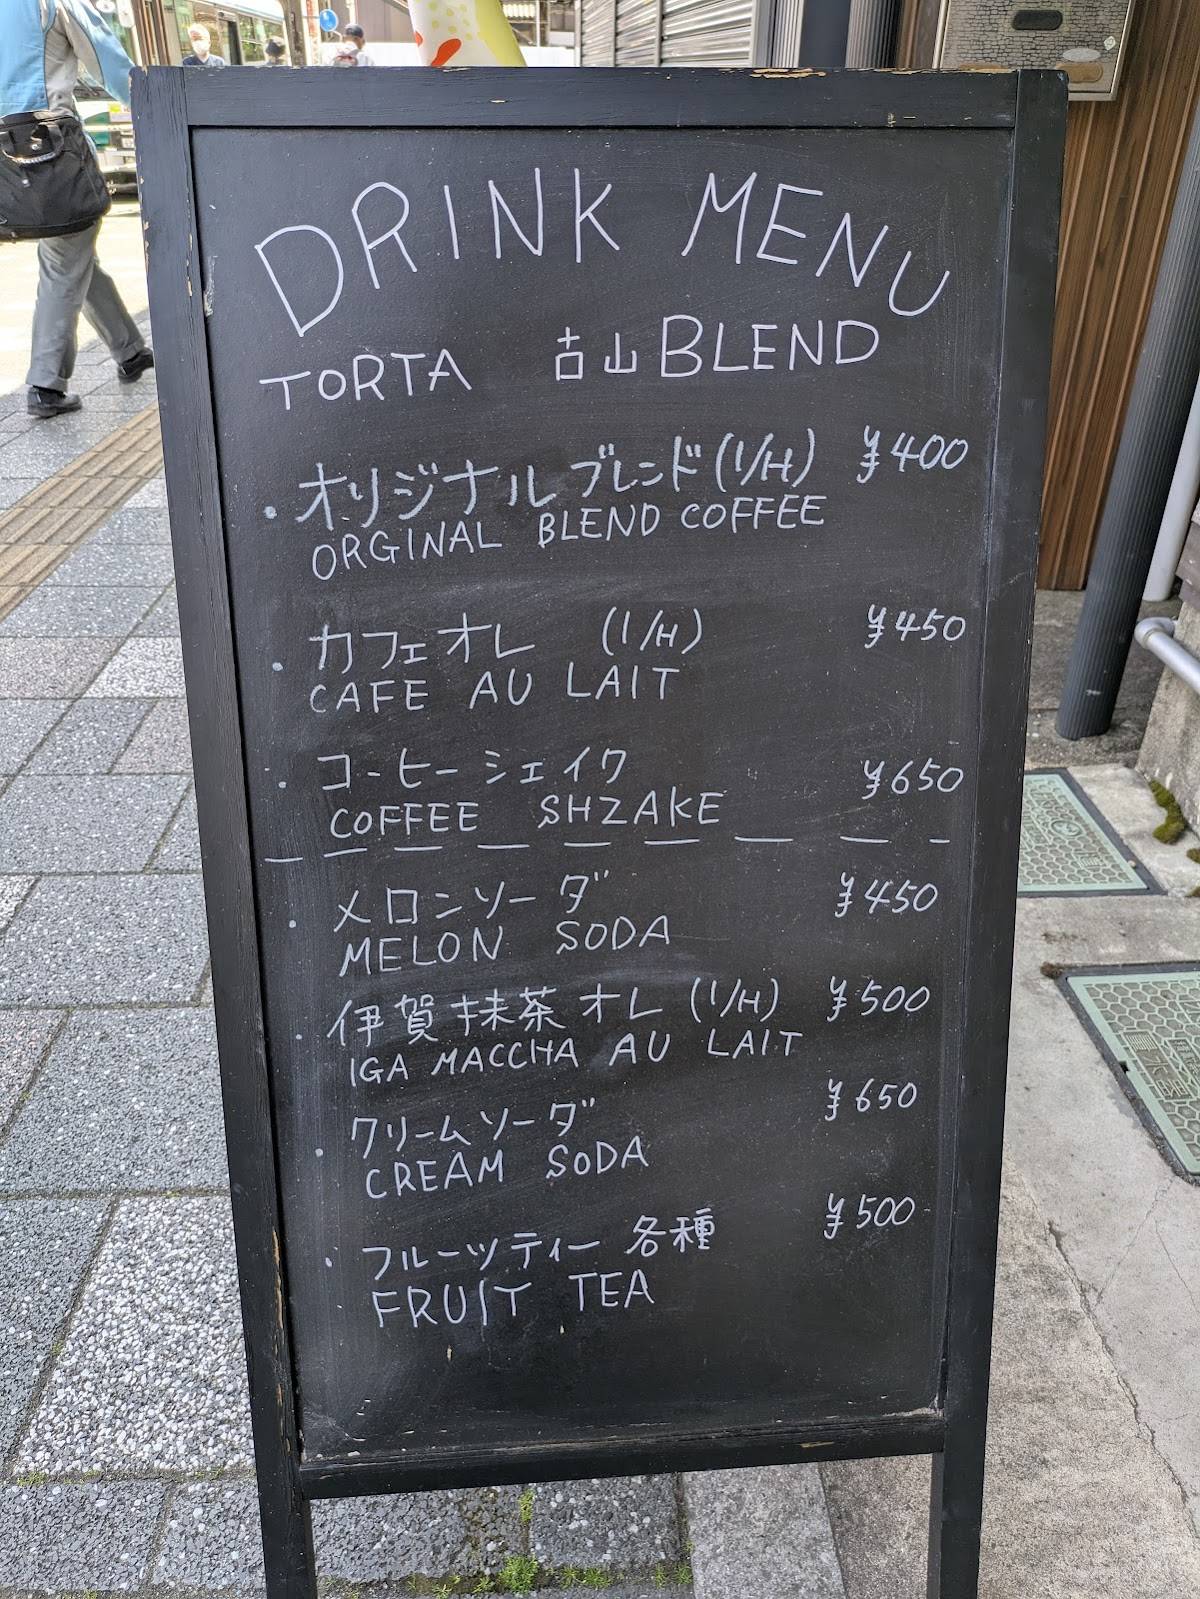 DRINK MENU
TORTA 古山 BLEND
・オリジナルブレンド(I/H) ¥400
ORGINAL BLEND COFFEE
・カフェオレ (I/H) ¥450
CAFE AU LAIT
・コーヒーシェイク ¥650
COFFEE SHZAKE
・メロンソーダ ¥450
MELON SODA
・伊賀抹茶オレ (I/H) ¥500
IGA MACCHA AU LAIT
・クリームソーダ ¥650
CREAM SODA
・フルーツティー 各種 ¥500
FRUIT TEA